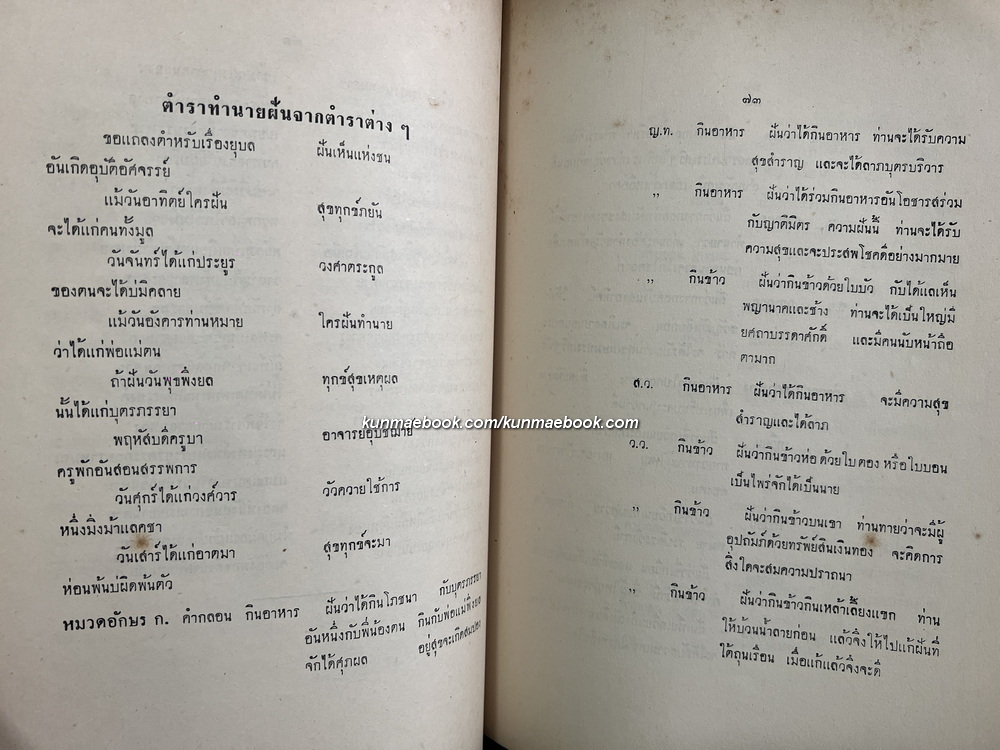 ตำราทำนายฝันจากตำราต่าง ๆ
ขอแถลงตำหรับเรื่องยุบล ฝันเห็นแห่งชน
อันเกิดอุบัติอัศจรรย์
แม้วันอาทิตย์ใครฝัน สุขทุกข์ภยัน
จะได้แก่คนทั้งมูล
วันจันทร์ได้แก่ประยูร วงศาตระกูล
ของตนจะได้บ่มิคลาย
แม้วันอังคารท่านหมาย ใครฝันทำนาย
ว่าได้แก่พ่อแม่ตน
ถ้าฝันวันพุธพึงยล ทุกข์สุขเหตุผล
นั้นได้แก่บุตรภรรยา
พฤหัสบดีครูบา อาจารย์อุปัชฌาย์
ครูพักอันสอนสรรพการ
วันศุกร์ได้แก่วงศ์วาร วัวควายใช้การ
หนึ่งมิ่งม้าแลคชา
วันเสาร์ได้แก่อาตมา สุขทุกข์จะมา
ห่อนพ้นบ่ผิดพ้นตัว
หมวดอักษร ก. คำกลอน กินอาหาร ฝันว่าได้กินโภชนา กับบุตรภรรยา
อันหนึ่งกับพี่น้องตน กินกับพ่อแม่พึงยล
จักได้ศุภผล อยู่สุขจะเกิดสนอง
kunmaebook.com/kunmaebook.com
๗๓
ญ.ท. กินอาหาร ฝันว่าได้กินอาหาร ท่านจะได้รับความ
สุขสำราญ และจะได้ลาภบุตรบริวาร
,, กินอาหาร ฝันว่าได้ร่วมกินอาหารอันโอชารสร่วม
กับญาติมิตร ความฝันนี้ ท่านจะได้รับ
ความสุขและจะประสพโชคดีอย่างมากมาย
,, กินข้าว ฝันว่ากินข้าวด้วยใบบัว กับได้แลเห็น
พญานาคและช้าง ท่านจะได้เป็นใหญ่มี
ยศถาบรรดาศักดิ์ และมีคนนับหน้าถือ
ตามาก
ส.ว. กินอาหาร ฝันว่าได้กินอาหาร จะมีความสุข
สำราญและได้ลาภ
ว.ว. กินข้าว ฝันว่ากินข้าวห่อ ด้วยใบตอง หรือใบบอน
เป็นไพร่จักได้เป็นนาย
,, กินข้าว ฝันว่ากินข้าวบนเขา ท่านทายว่าจะมีผู้
อุปถัมภ์ด้วยทรัพย์สินเงินทอง จะคิดการ
สิ่งใดจะสมความปรารถนา
,, กินข้าว ฝันว่ากินข้าวกินเหล้าเลี้ยงแขก ท่าน
ให้บ้วนน้ำลายก่อน แล้วจึงให้ไปแก้ฝันที่
ใต้ถุนเรือน เมื่อแก้แล้วจึงจะดี